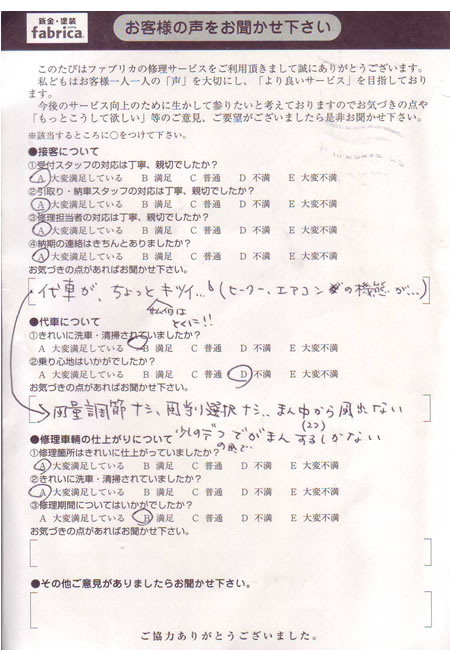 鈑金・塗装
fabrica.
お客様の声をお聞かせ下さい
このたびはファブリカの修理サービスをご利用頂きまして誠にありがとうございます。
私どもはお客様一人一人の「声」を大切にし、「より良いサービス」を目指しており
ます。
今後のサービス向上のために生かして参りたいと考えておりますのでお気づきの点や
「もっとこうして欲しい」等のご意見、ご要望がございましたら是非お聞かせ下さい。
※該当するところに○をつけて下さい。
●接客について
①受付スタッフの対応は丁寧、親切でしたか?
A 大変満足している B 満足 C 普通 D 不満 E 大変不満
②引取り・納車スタッフの対応は丁寧、親切でしたか?
A 大変満足している B 満足 C 普通 D 不満 E 大変不満
③修理担当者の対応は丁寧、親切でしたか?
A 大変満足している B 満足 C 普通 D 不満 E 大変不満
④納期の連絡はきちんとありましたか?
A 大変満足している B 満足 C 普通 D 不満 E 大変不満
お気づきの点があればお聞かせ下さい。
代車が、ちょっとキツイ…! (ヒーター、エアコンの機能が…)
とくに!!
●代車について
①きれいに洗車・清掃されていましたか?
A 大変満足している B 満足 C 普通 D 不満 E 大変不満
②乗り心地はいかがでしたか?
A 大変満足している B 満足 C 普通 D 不満 E 大変不満
お気づきの点があればお聞かせ下さい。
風量調節ナシ、風向り選択ナシ、まん中から風出ない
●修理車輌の仕上がりについて
少しのデフでがまんするしかない
の風で
①修理箇所はきれいに仕上がっていましたか?
A 大変満足している B 満足 C 普通 D 不満 E 大変不満
②きれいに洗車・清掃されていましたか?
A 大変満足している B 満足 C 普通 D 不満 E 大変不満
③修理期間についてはいかがでしたか?
A 大変満足している B 満足 C 普通 D 不満 E 大変不満
お気づきの点があればお聞かせ下さい。
●その他ご意見がありましたらお聞かせ下さい。
ご協力ありがとうございました。